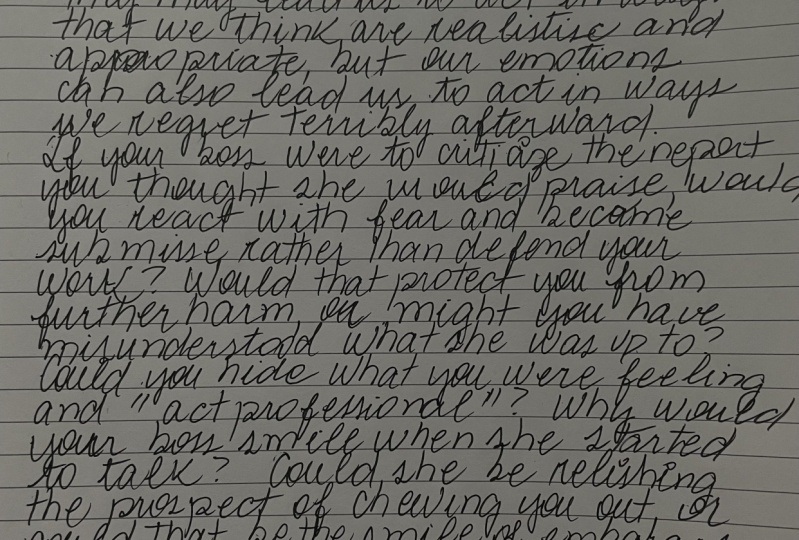 that we think are realistic and
appropriate, but our emotions
can also lead us to act in ways
we regret terribly afterward.
If your boss were to critiaze the report
you thought she would praise, would
you react with fear and become
submisse, rather than defend your
work? Would that protect you from
further harm, or might you have
misunderstood what she was up to?
Could you hide what you were feeling
and "act professional"? Why would
your boss smile when she started
to talk? Could she be relishing
the prospect of chewing you out, or
could that be the smile of embarrass